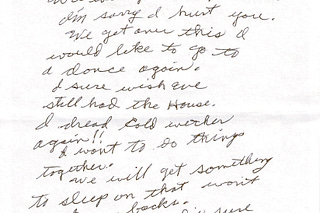 I'm sorry I hurt you.
We get over this I
would like to go to
a dance again.
I sure wish we
still had the House.
I dread Cold wether
again!!
I want to do things
together.
we will get something
to sleep on that won't
backs.
sure